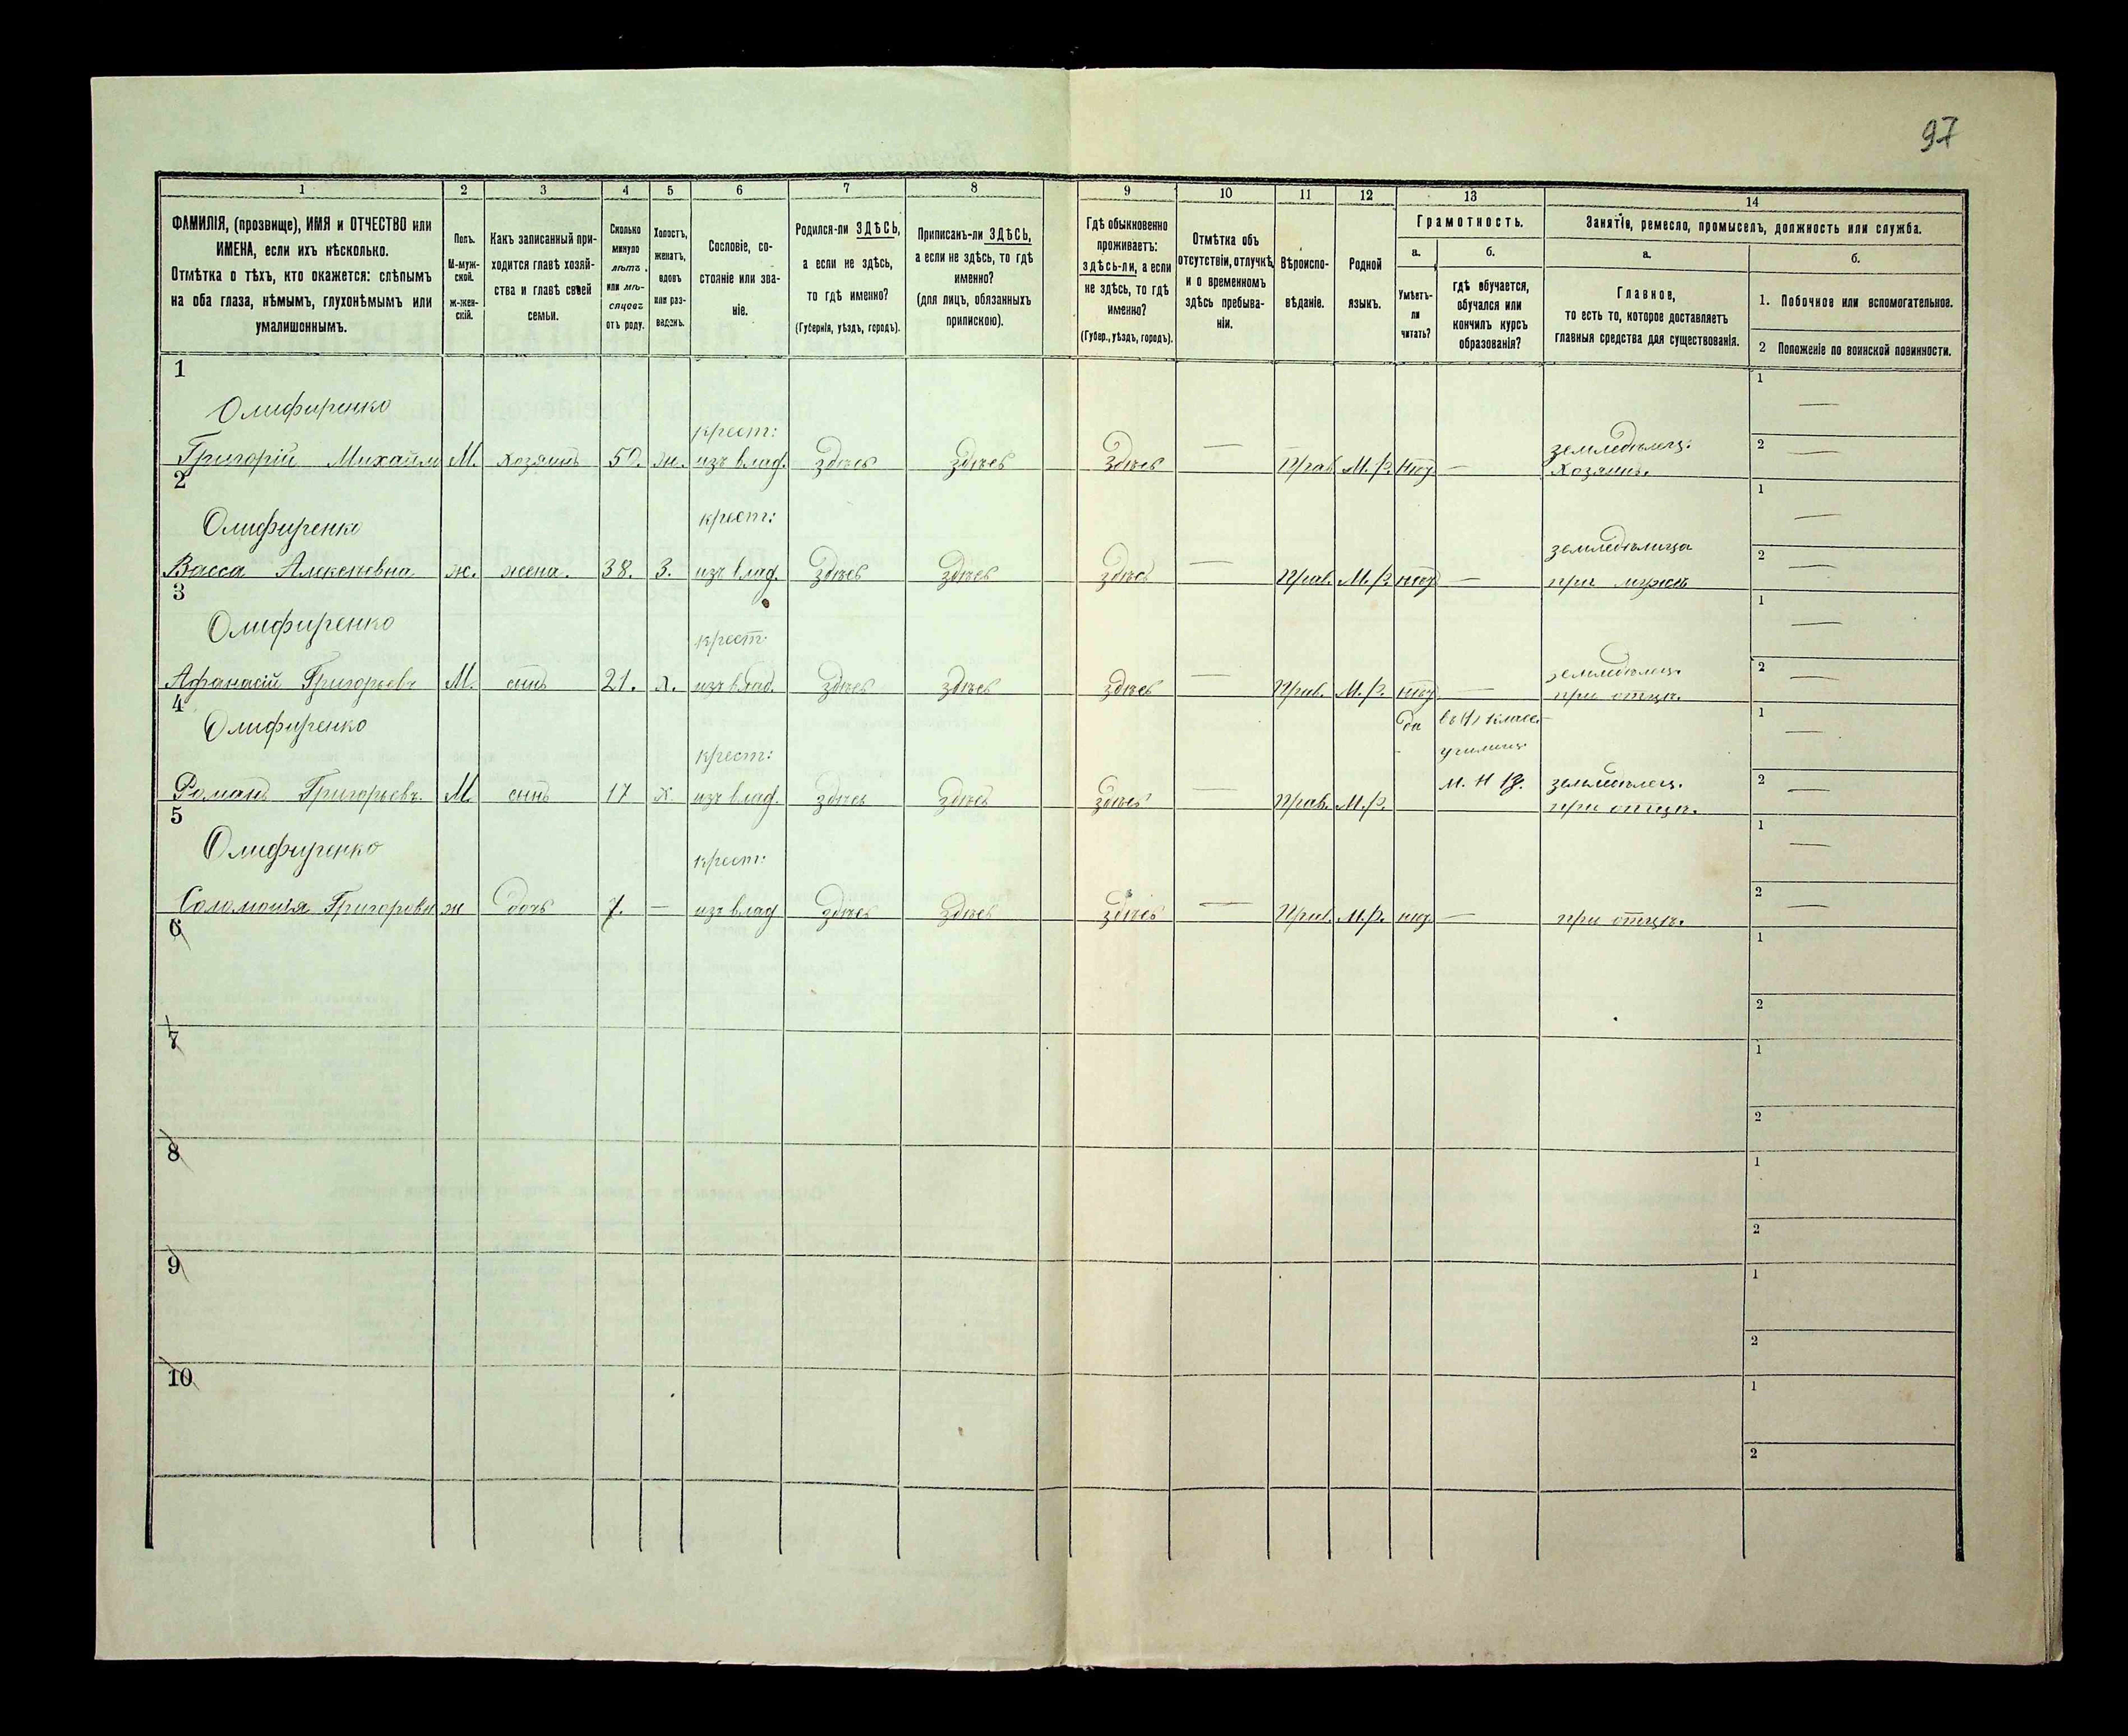 97
1 2 3 4 5 6 7 8 9 10 11 12 13 14
ФАМИЛІЯ, (прозвище), ИМЯ и ОТЧЕСТВО или
ИМЕНА, если ихъ нѣсколько.
Отмѣтка о тѣхъ, кто окажется: слѣпымъ
на оба глаза, нѣмымъ, глухонѣмымъ или
умалишоннымъ.
Полъ.
М-муж-
ской.
ж-жен-
скій.
Какъ записанный при-
ходится главѣ хозяй-
ства и главѣ своей
семьи.
Сколько
минуло
лѣтъ
или мѣ-
сяцевъ
отъ роду.
Холостъ,
женатъ,
вдовъ
или раз-
веденъ.
Сословіе, со-
стояніе или зва-
ніе.
Родился-ли ЗДѢСЬ,
а если не здѣсь,
то гдѣ именно?
(Губернія, уѣздъ, городъ).
Приписанъ-ли ЗДѢСЬ,
а если не здѣсь, то гдѣ
именно?
(для лицъ, обязанныхъ
припискою).
Гдѣ обыкновенно
проживаетъ:
здѣсь-ли, а если
не здѣсь, то гдѣ
именно?
(Губер., уѣздъ, городъ).
Отмѣтка объ
отсутствіи, отлучкѣ
и о временномъ
здѣсь пребыва-
ніи.
Вѣроиспо-
вѣданіе.
Родной
языкъ.
Грамотность.
а.
Умѣетъ-
ли
читать?
б.
гдѣ обучается,
обучался или
кончилъ курсъ
образованія?
Занятіе, ремесло, промыселъ, должность или служба.
а.
Главное,
то есть то, которое доставляетъ
главныя средства для существованія.
б.
1. Побочное или вспомогательное.
2 Положеніе по воинской повинности.
1
Олифиренко
крест: землѣдѣлец:
Григорій Михайл М. хозяинъ 50. ж. изъ влад. здѣсь здѣсь здѣсь — Прав. М. Р. нѣт — Хозяинъ.
1 —
2 —
2
Олифиренко
крест: землѣдѣлица
Васса Алексеевна ж. жена. 38. З. изъ влад. здѣсь здѣсь здѣсь — Прав. М. Р. нѣт — при мужѣ
1 —
2 —
3
Олифиренко
крест: землѣдѣлец.
Афанасій Григорьевъ М. сынъ 21. х. изъ влад. здѣсь здѣсь здѣсь — Прав. М. Р. нѣт — при отцѣ.
1 —
2 —
4
Олифиренко
крест: да училищ
Романъ Григорьевъ. М. сынъ 17 х. изъ влад. здѣсь здѣсь здѣсь — Прав. М. Р. землѣдѣлец.
при отцѣ.
1 —
2 —
5
Олифиренко
крест:
Соломонія Григоровн ж дочь 7. — изъ влад здѣсь здѣсь здѣсь — Прав. М. Р. нѣт — при отцѣ.
1 —
2 —
6
1
2
7
1
2
8
1
2
9
1
2
10
1
2